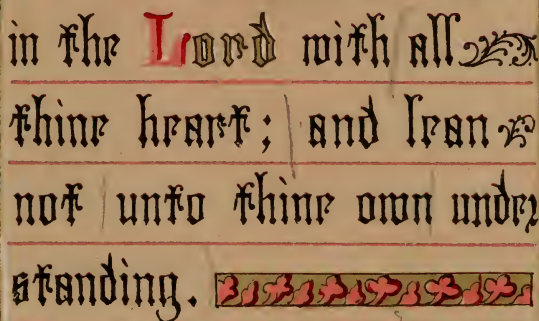 in the Lord with all
thine heart; and lean
not unto thine own under
standing.